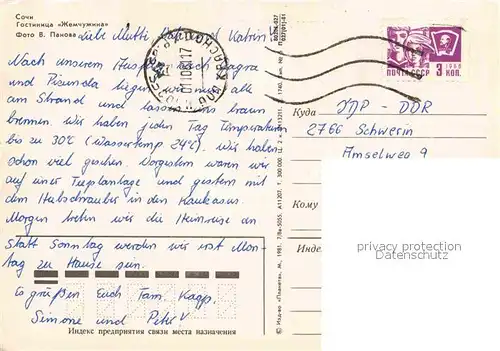 Сочи
Гостиница «Жемчужина»
Фото В. Панова
Liebe Mutti, Katrin!
Nach unserem nach Gagra
und Pizunda liegen wir nun alle
am Strand und lassen uns braun
brennen. Wir haben jeden Tag Temperaturen
bis zu 30°C (Wassertemp 24°C). Wir haben
schon viel gesehen. Vorgestern waren wir
auf einer Teeplantage und gestern mit
dem Hubschrauber in den Kaukasus.
Morgen treten wir die Heimreise an
statt Sonntag werden wir erst Mon-
tag zu Hause sein.
Es grüßen Euch Fam. Kapp.
Simone und Peter
Индекс предприятия связи места назначения
ПОЧТА СССР 3 КОП.
1968
Куда ДДР - DDR
2766 Schwerin
Amselweg 9
Кому
Индекс
privacy protection
Datenschutz